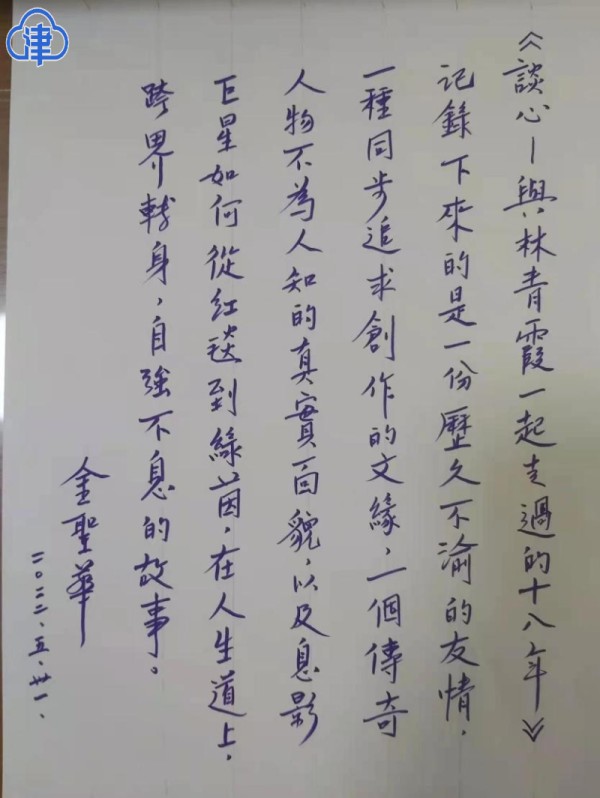 《談心—與林青霞一起走過的十八年》
記錄下來的是一份歷久不渝的友情，
一種同步追求創作的文緣，一個傳奇
人物不為人知的真實面貌，以及息影
巨星如何從紅毯到綠茵，在人生道上，
跨界轉身，自強不息的故事。
金聖華
二〇二二、五、廿一、
津